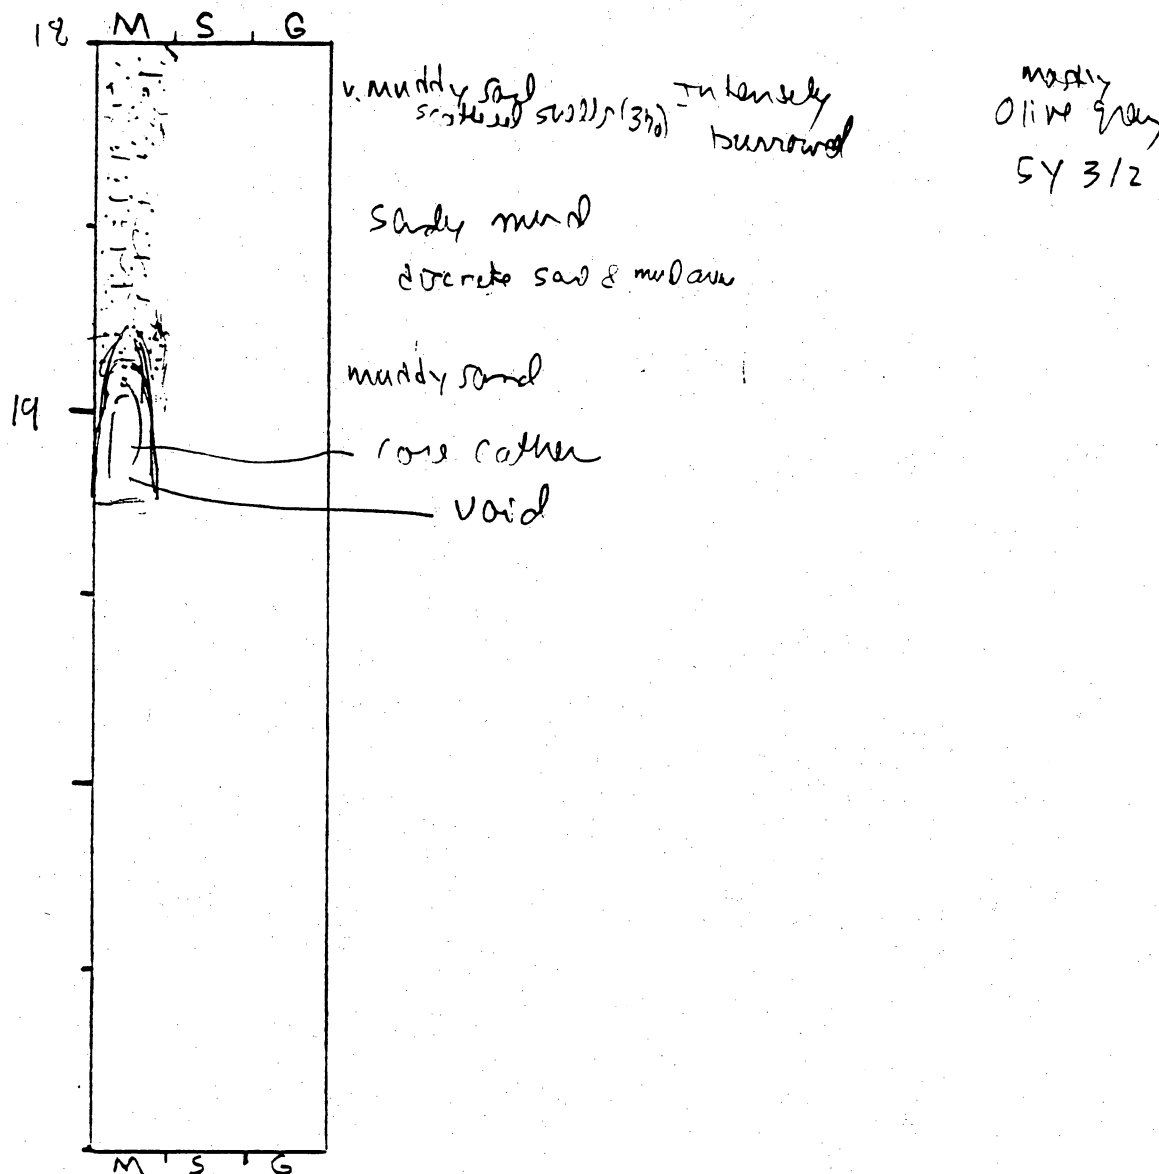 M S G
18
v. muddy sand
scattered shells (3%)
- Intensely
burrowed
mostly
Olive gray
5Y 3/2
Sandy mud
discrete sand & mud
muddy sand
19
core catcher
void
M S G